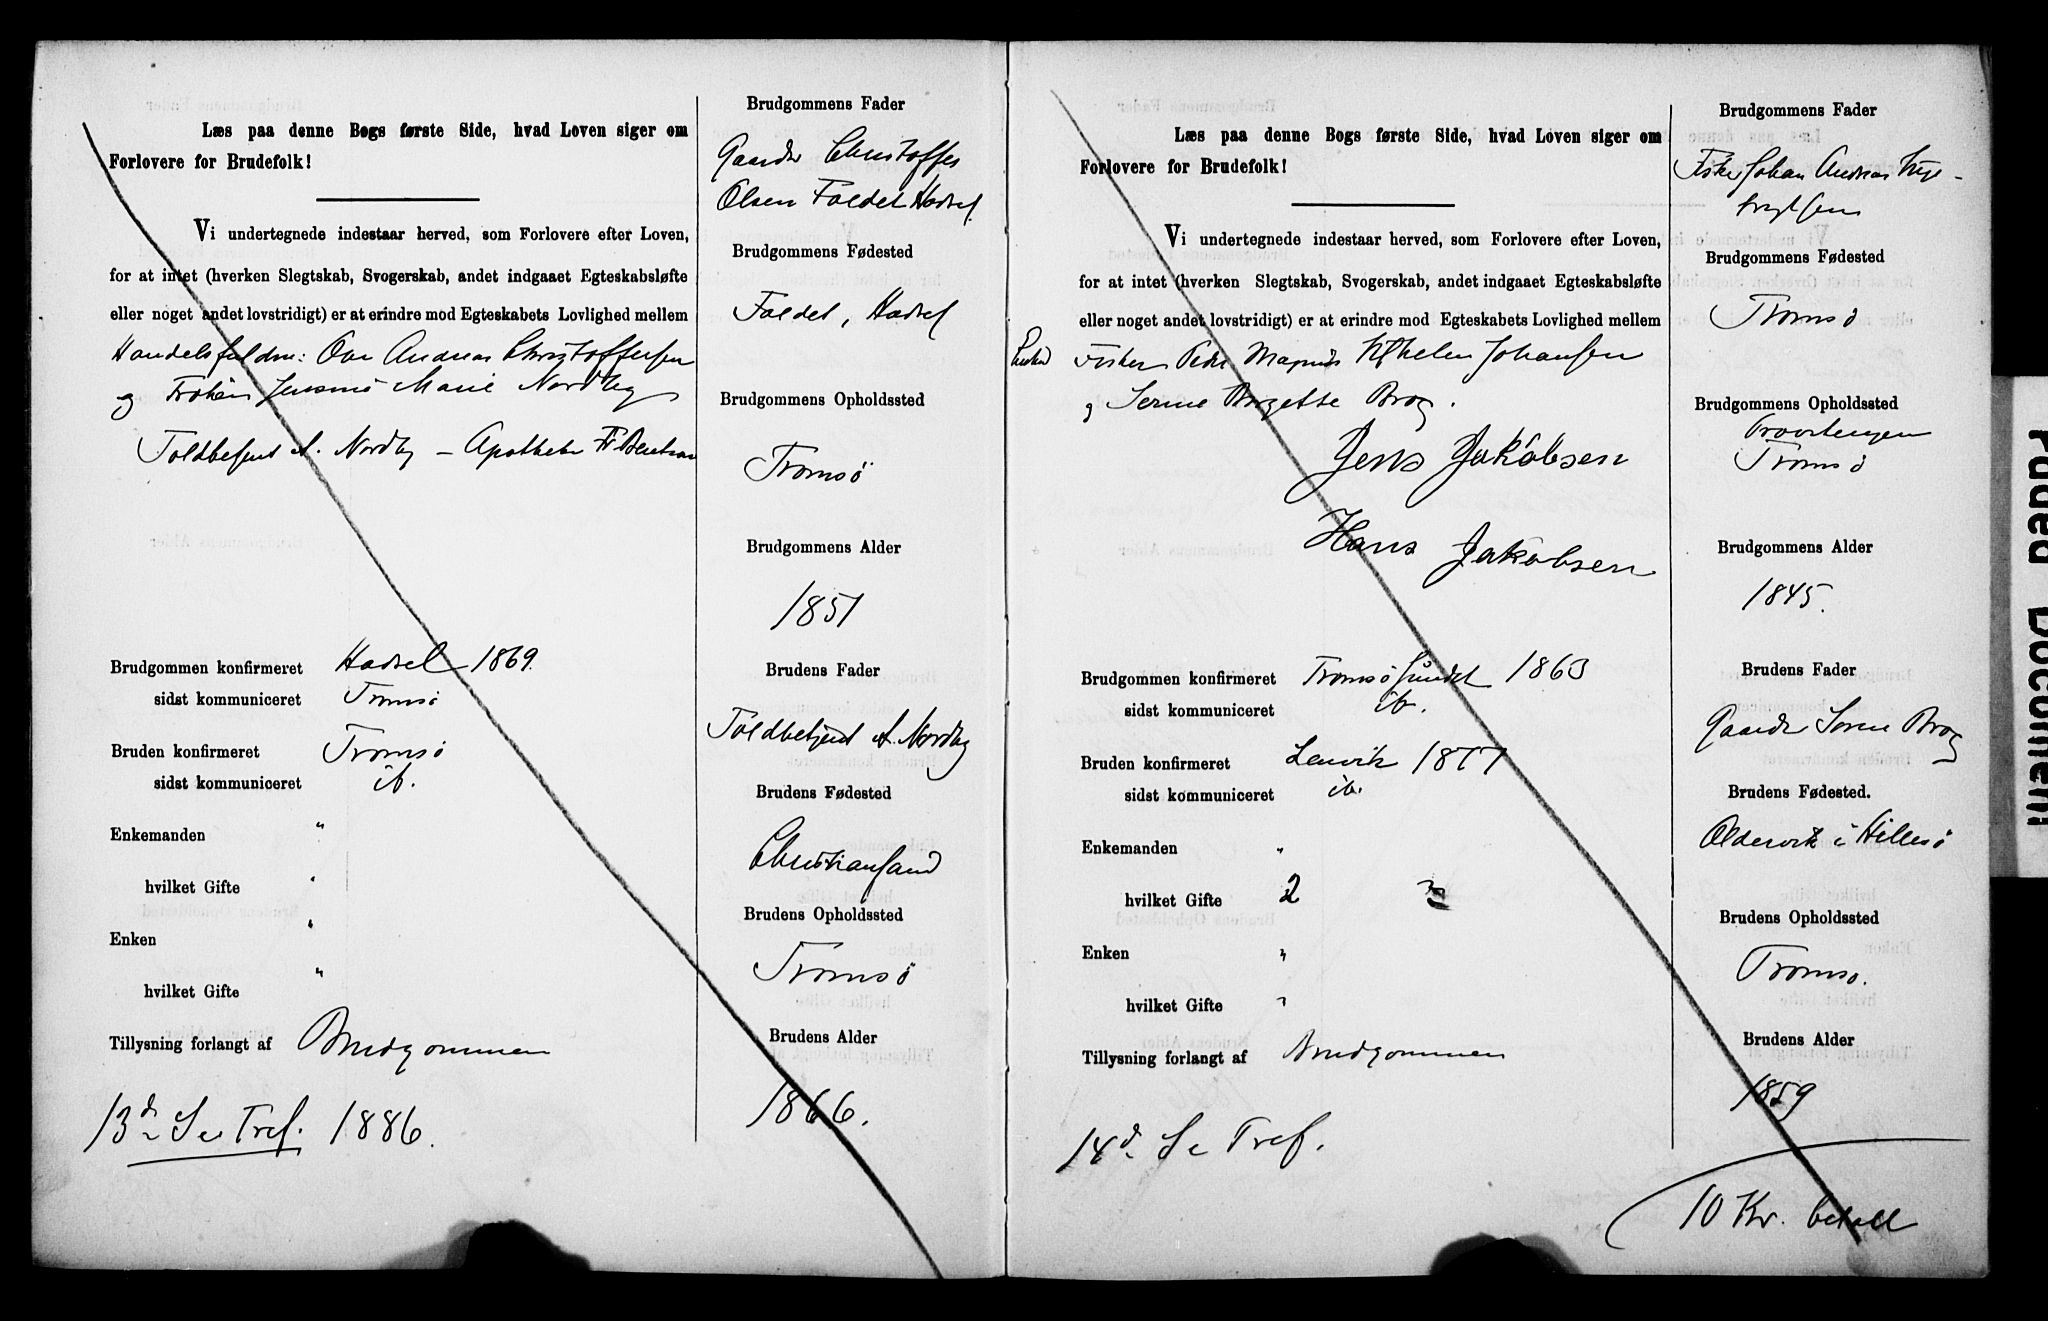 Læs paa denne Bogs første Side, hvad Loven siger om
Forlovere for Brudefolk!
Vi undertegnede indestaar herved, som Forlovere efter Loven,
for at intet (hverken Slegtskab, Svogerskab, andet indgaaet Egteskabsløfte
eller noget andet lovstridigt) er at erindre mod Egteskabets Lovlighed mellem
Andreas Christoffersen
og Frøken Marie Nordby
Toldbetjent A. Nordby – Apotheker
Brudgommen konfirmeret Hadsel 1869.
sidst kommuniceret Tromsö
Bruden konfirmeret Tromsö
sidst kommuniceret ib.
Enkemanden "
hvilket Gifte "
Enken "
hvilket Gifte "
Tillysning forlangt af Brudgommen
13d S e Tref. 1886.
Brudgommens Fader
Gaardbr Christoffer
Olsen Foldet Hadsel
Brudgommens Fødested
Foldet, Hadsel
Brudgommens Opholdssted
Tromsö
Brudgommens Alder
1851
Brudens Fader
Toldbetjent A. Nordby
Brudens Fødested
Christiansand
Brudens Opholdssted
Tromsö
Brudens Alder
1866.
Læs paa denne Bogs første Side, hvad Loven siger om
Forlovere for Brudefolk!
Vi undertegnede indestaar herved, som Forlovere efter Loven,
for at intet (hverken Slegtskab, Svogerskab, andet indgaaet Egteskabsløfte
eller noget andet lovstridigt) er at erindre mod Egteskabets Lovlighed mellem
Fisker Peder Magnus Johansen
og Brog.
Jens Jakobsen
Hans Jakobsen
Brudgommen konfirmeret Tromsösundet 1863
sidst kommuniceret ib.
Bruden konfirmeret Lenvik 1877
sidst kommuniceret ib.
Enkemanden "
hvilket Gifte 2
Enken "
hvilket Gifte "
Tillysning forlangt af Brudgommen
14d S e Tref.
Brudgommens Fader
Fisker Johan Andreas
Brudgommens Fødested
Tromsö
Brudgommens Opholdssted
Tromsö
Brudgommens Alder
1845.
Brudens Fader
Gaardbr Sören Brog
Brudens Fødested.
Oldervik i Hillesö
Brudens Opholdssted
Tromsö.
Brudens Alder
1859
10 Kr. betalt